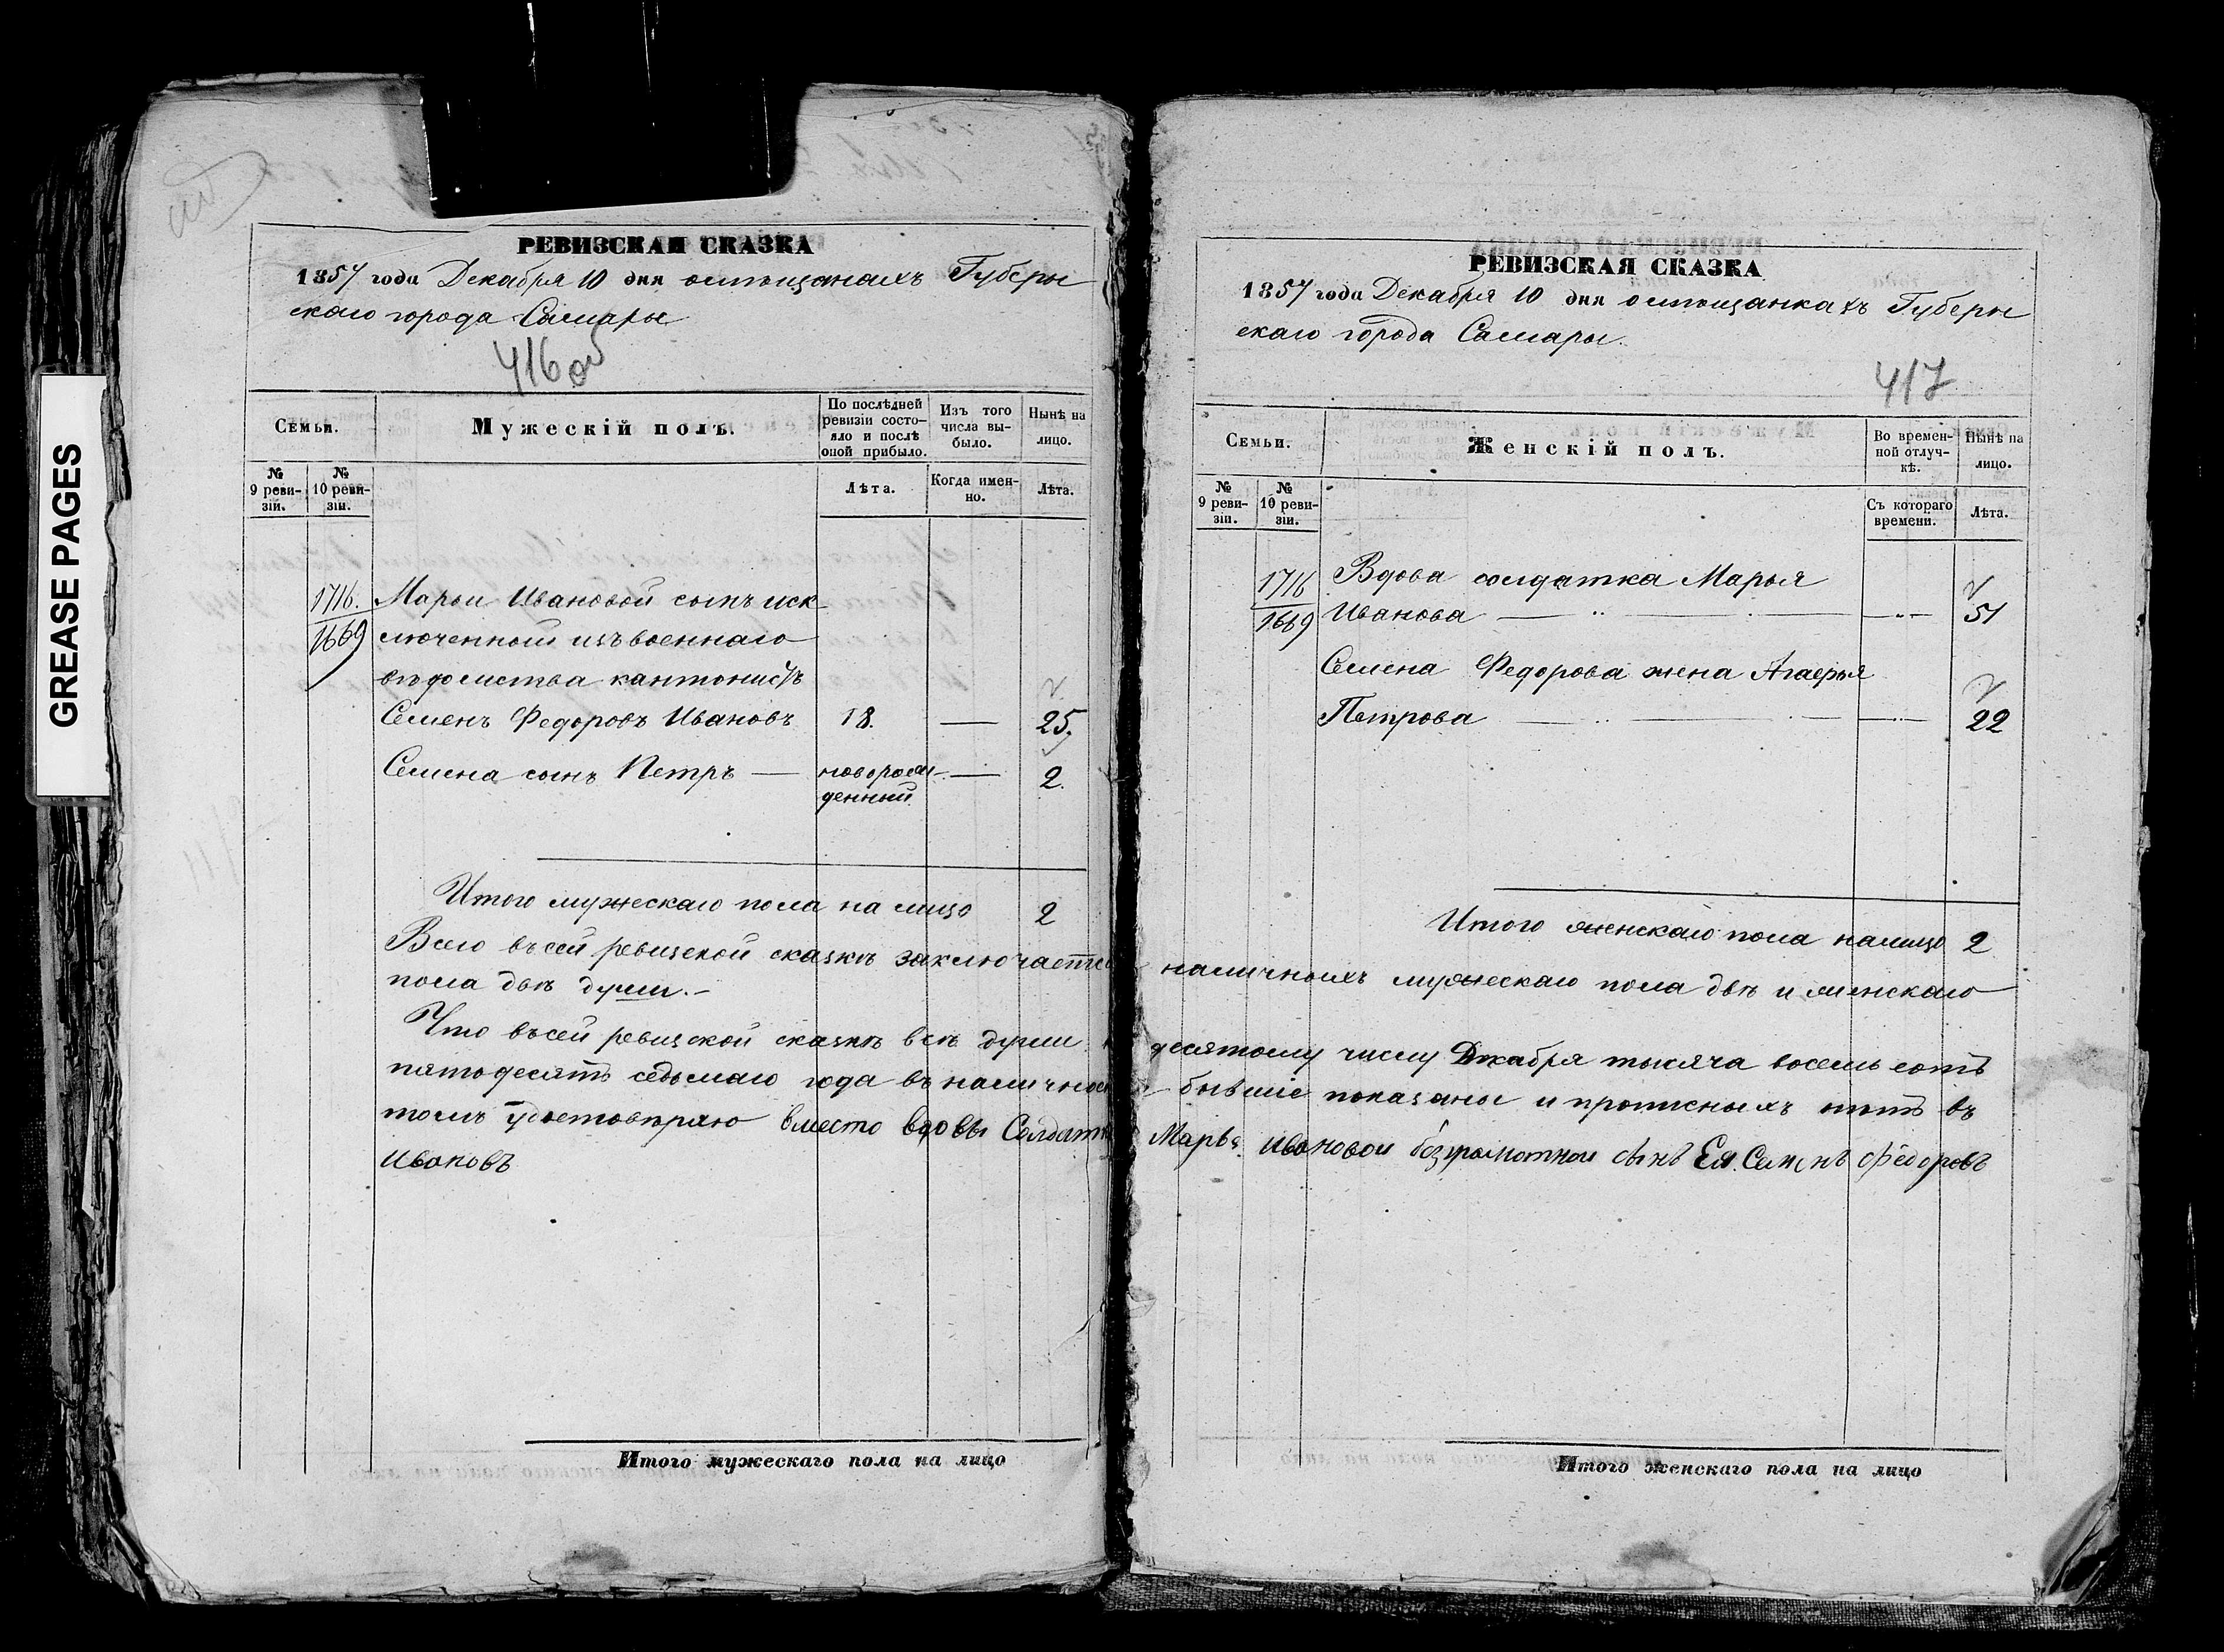 GREASE PAGES
РЕВИЗСКАЯ СКАЗКА
1857 года Декабря 10 дня о мѣщанахъ Губерн
скаго города Самары
416 об
Семьи.
Мужескій полъ.
По послѣдней ревизіи состояло и послѣ оной прибыло.
Изъ того числа выбыло.
Нынѣ на лицо.
№ 9 ревизіи.
№ 10 ревизіи.
Лѣта.
Когда именно.
Лѣта.
1716. Марьи Ивановой сынъ иск
1669 люченной изъ военнаго
вѣдомства кантонистъ
Семенъ Федоровъ Ивановъ 18. — 25.
Семена сынъ Петръ — новорож — 2.
денный
Итого мужескаго пола на лицо 2
Всего въ сей ревизской сказкѣ заключается
пола двѣ души.-
Что въ сей ревизской сказкѣ всѣ души
пятьдесятъ седьмаго года въ налично
томъ удостовѣряю вместо вдовы Солдатк
Ивановъ
Итого мужескаго пола на лицо
РЕВИЗСКАЯ СКАЗКА
1857 года Декабря 10 дня о мѣщанкахъ Губерн
скаго города Самары.
417
Семьи.
Женскій полъ.
Во временной отлучкѣ.
Нынѣ на лицо.
№ 9 ревизіи.
№ 10 ревизіи.
Съ котораго времени.
Лѣта.
1716 Вдова солдатка Марья
1669 Иванова — — 51
Семена Федорова жена Агафья
Петрова — — 22
Итого женскаго пола налицо 2
наличныхъ мужескаго пола двѣ и женскаго
десятому числу Декабря тысяча восемь сотъ
бывшіе показаны и прописныхъ нѣтъ въ
Марья Ивановои безграмотнои сынъ Ея Семенъ Федоровъ
Итого женскаго пола на лицо